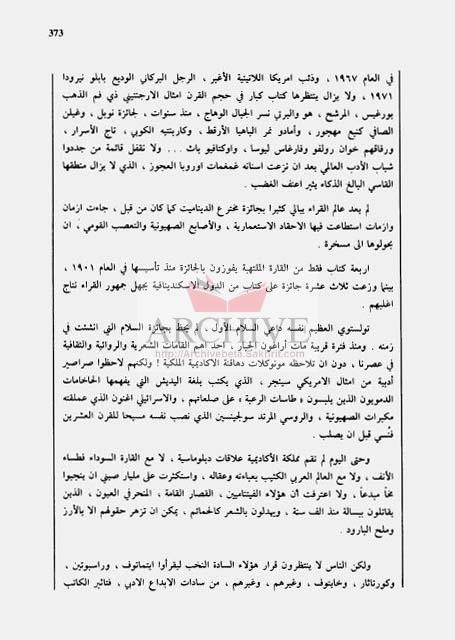 373
في العام ١٩٦٧ ، وذئب امريكا اللاتينية الأغبر ، الرجل البركاني الوديع بابلو نيرودا
١٩٧١ ، ولا يزال ينتظرها كتاب كبار في حجم القرن امثال الارجنتيني ذي فم الذهب
بورغيس ، المرشح ، هو والبرتي نسر الجبال الوهاج ، منذ سنوات ، لجائزة نوبل ، وغيلن
الصافي كنبع مهجور ، وأمادو نمر الباهيا الأرقط ، وكاربنتيه الكوبي ، تاج الأسرار ،
ورفاقهم خوان رولفو وفارغاس ليوسا ، واوكتافيو باث ... ولا نقفل قائمة من جددوا
شباب الأدب العالمي بعد ان نزعت اسنانه غمغمات اوروبا العجوز ، الذي لا يزال منطقها
القاسي البالغ الذكاء يثير اعنف الغضب .
لم يعد عالم القراء يبالي كثيرا بجائزة مخترع الديناميت كما كان من قبل ، جاءت ازمان
وازمات استطاعت فيها الاحقاد الاستعمارية ، والأصابع الصهيونية والتعصب القومي ، ان
يحولوها الى مسخرة .
اربعة كتاب فقط من القارة الملتهبة يفوزون بالجائزة منذ تأسيسها في العام ١٩٠١ ،
بينما وزعت ثلاث عشرة جائزة على كتاب من الدول الاسكندينافية يجهل جمهور القراء نتاج
اغلبهم .
تولستوي العظيم نفسه داعي السلام الأول ، لم يحظ بجائزة السلام التي انشئت في
زمنه . ومنذ فترة قريبة مات أراغون الجبار ، احد اهم القامات الشعرية والروائية والثقافية
في عصرنا ، دون ان تلاحظه مونوكلات دهاقنة الاكاديمية الملكية ! ولكنهم لاحظوا صراصير
أدبية من امثال الامريكي سينجر ، الذي يكتب بلغة اليديش التي يفهمها الحاخامات
الدمويون الذين يلبسون « طاسات الرعبة » على صلعاتهم ، والاسرائيلي اغنون الذي عملقته
مكبرات الصهيونية ، والروسي المرتد سولجينسين الذي نصب نفسه مسيحا للقرن العشرين
فنُسي قبل ان يصلب .
وحتى اليوم لم تقم مملكة الأكاديمية علاقات دبلوماسية ، لا مع القارة السوداء فطساء
الأنف ، ولا مع العالم العربي الكئيب بعباءته وعقاله ، واستكثرت على مليار صيني ان ينجبوا
مخاً مبدعاً ، ولا اعترفت أن هؤلاء الفيتناميين ، القصار القامة ، المنحرفي العيون ، الذين
يقاتلون ببسالة منذ الف سنة ، ويهدلون بالشعر كالحمائم ، يمكن ان تزهر حقولهم الا بالأرز
وملح البارود .
ولكن الناس لا ينتظرون قرار هؤلاء السادة النخب ليقرأوا ايتماتوف ، وراسبوتين ،
وكورتاثار ، وخايتوف ، وغيرهم ، وغيرهم ، من سادات الابداع الادبي ، فتاثير الكاتب
ARCHIVE
http://Archivebeta.Sakhrit.com